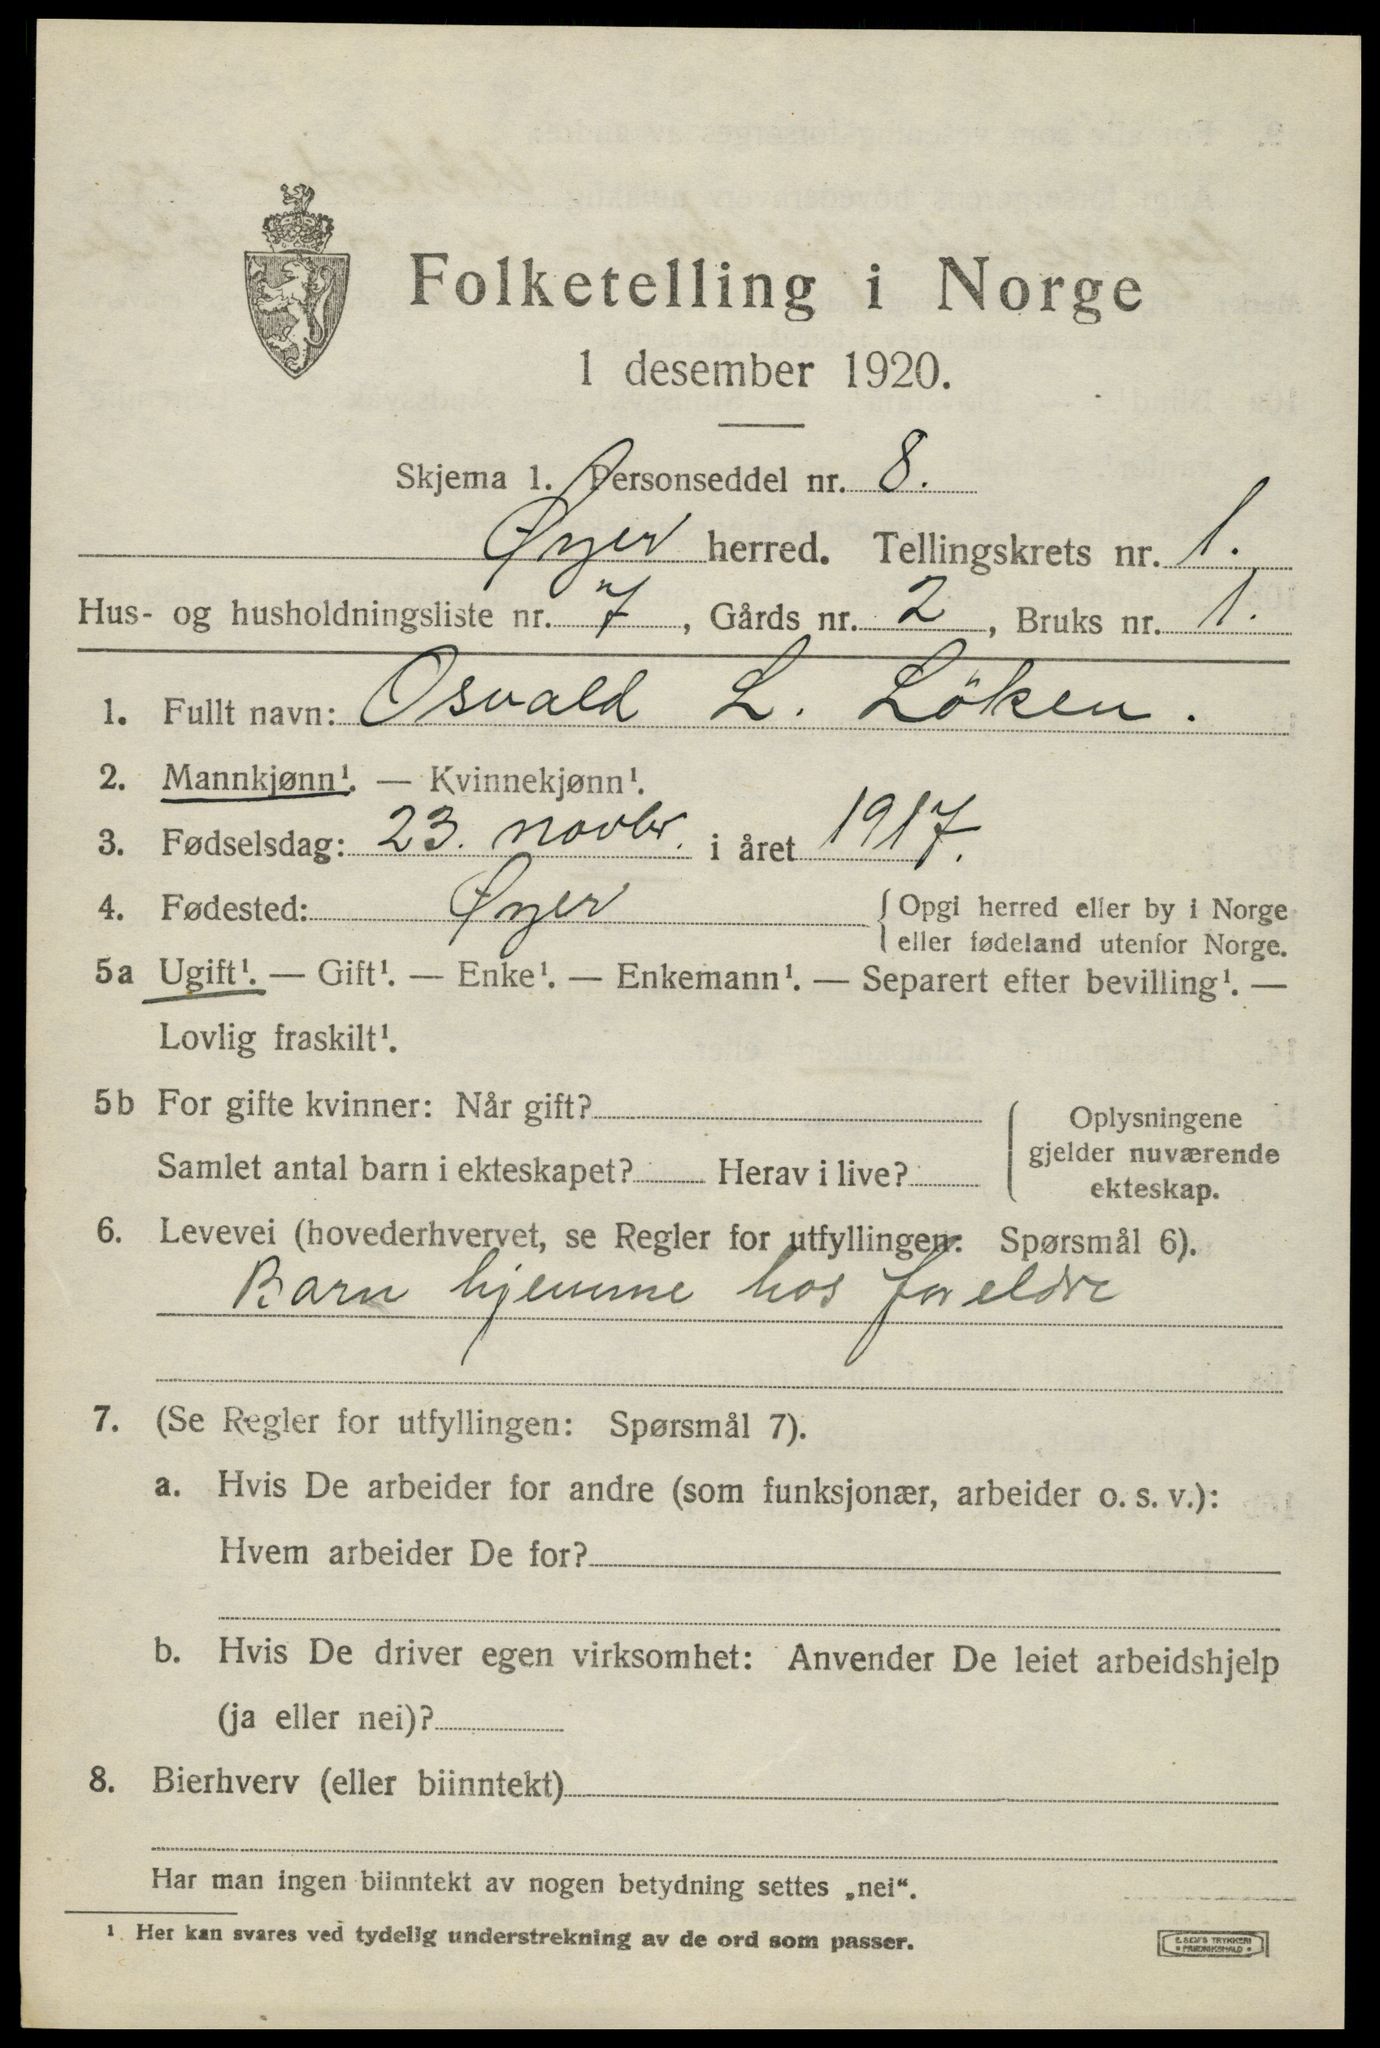 Folketelling i Norge
1 desember 1920.
Skjema 1. Personseddel nr. 8.
Øyer herred. Tellingskrets nr. 1.
Hus- og husholdningsliste nr. 7, Gårds nr. 2, Bruks nr. 1.
1. Fullt navn: Osvald L. Löken.
2. Mannkjønn¹. — Kvinnekjønn¹.
3. Fødselsdag: 23. novbr. i året 1917.
4. Fødested: Øyer { Opgi herred eller by i Norge
eller fødeland utenfor Norge.
5a Ugift¹. — Gift¹. — Enke¹. — Enkemann¹. — Separert efter bevilling¹. —
Lovlig fraskilt¹.
5b For gifte kvinner: Når gift?
Samlet antal barn i ekteskapet? Herav i live?
Oplysningene
gjelder nuværende
ekteskap.
6. Levevei (hovederhvervet, se Regler for utfyllingen: Spørsmål 6).
Barn hjemme hos foreldre
7. (Se Regler for utfyllingen: Spørsmål 7).
a. Hvis De arbeider for andre (som funksjonær, arbeider o. s. v.):
Hvem arbeider De for?
b. Hvis De driver egen virksomhet: Anvender De leiet arbeidshjelp
(ja eller nei)?
8. Bierhverv (eller biinntekt)
Har man ingen biinntekt av nogen betydning settes „nei“.
¹ Her kan svares ved tydelig understrekning av de ord som passer.
E. SEM'S TRYKKERI
• FREDRIKSHALD •